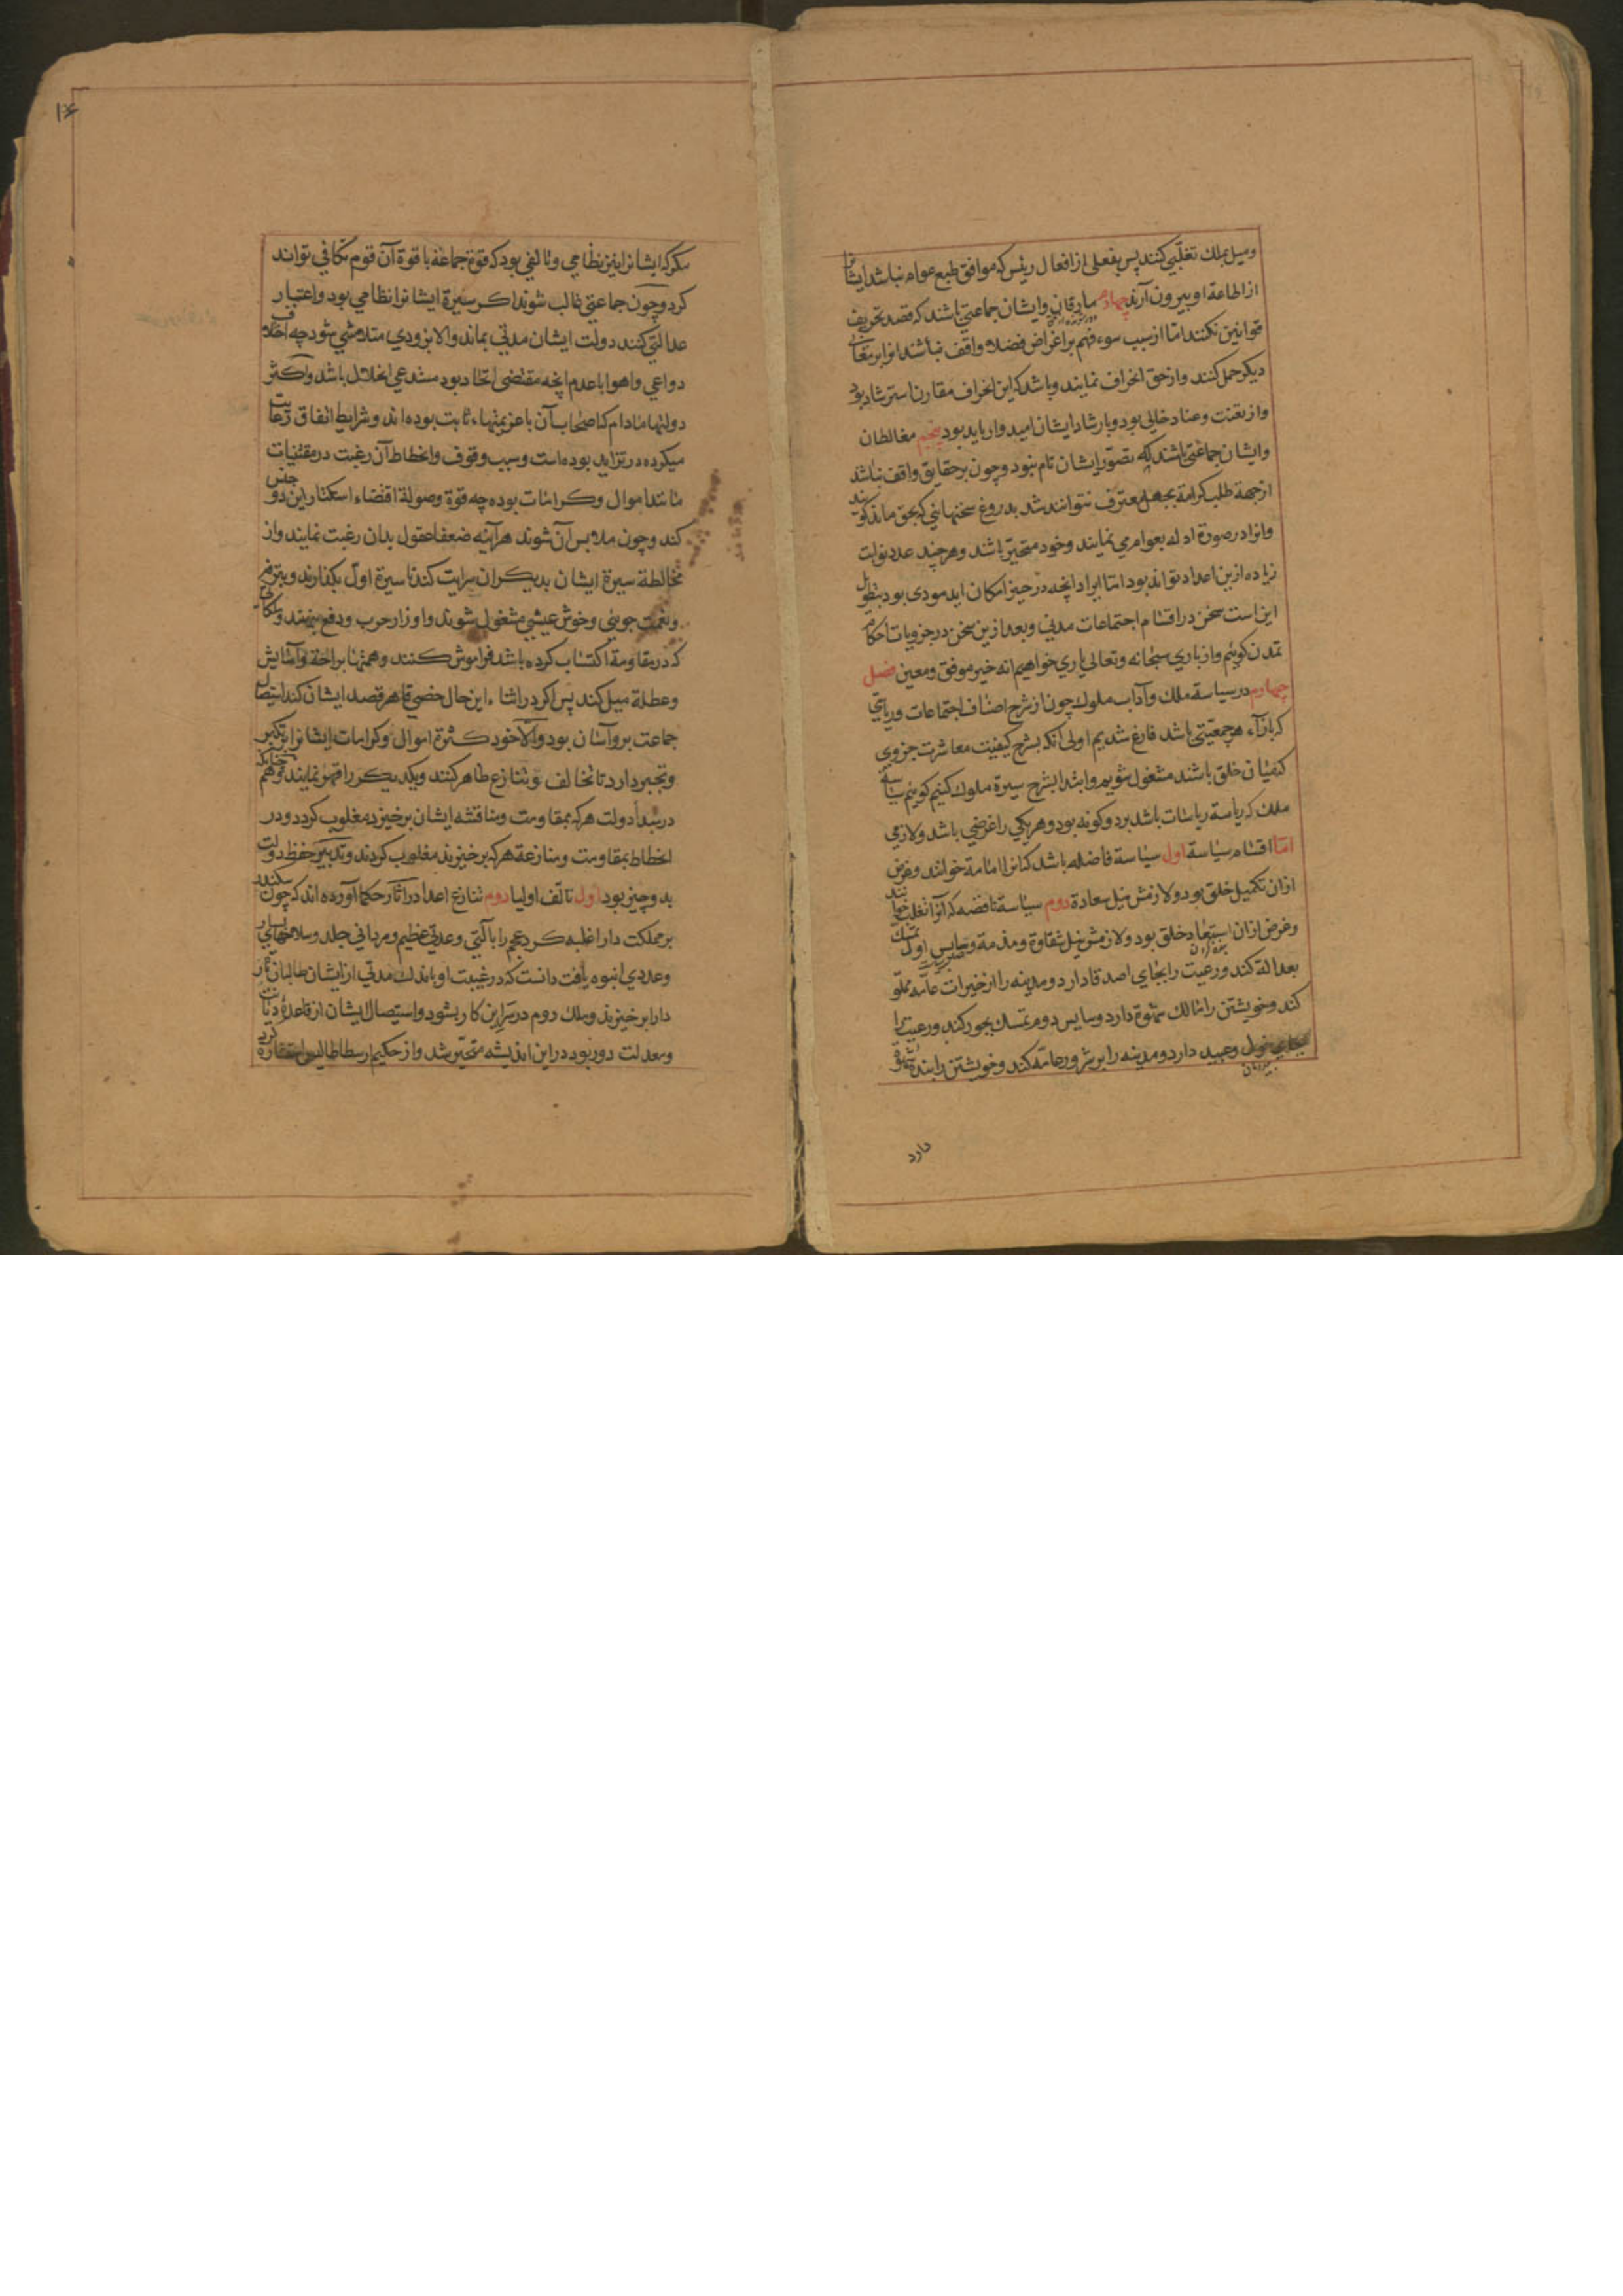 ومیل بملك تغلبی کنند پس بفعلی از افعال رئیس که موافق طبع عوام نباشد ایشانرا
از اطاعة او بیرون آرند چهارم مارقان وایشان جماعتی باشند که قصد تحریف
قوانین نکنند امّا از سبب سوء فهم بر اغراض فضلا واقف نباشند انرا بر معانی
دیکر حمل کنند واز حق انحراف نمایند وباشد که این انحراف مقارن استرشاد بود
واز تعنت وعناد خالی بود وبارشاد ایشان امیدوار باید بود پنجم مغالطان
وایشان جماعتی باشند که تصوّر ایشان تام نبود وچون بر حقایق واقف نباشد
از جهة طلب کرامة بجهل معترف نتوانند شد بدروغ سخنهائی که بحق ماند کویند
وانرا در صورة ادله بعوام می نمایند وخود متحیّر باشند وهر چند عدد نوابت
زیاده ازین اعداد تواند بود امّا ایراد انچه در حیز امکان اید مودی بود بتطویل
این است سخن در اقسام اجتماعات مدنی وبعد ازین سخن در جزویات احکام
تمدن کوییم واز باری سبحانه وتعالی یاری خواهیم انه خیر موفق ومعین فصل
چهارم در سیاسة ملك وآداب ملوك چون از شرح اصناف اجتماعات وریاستی
که بازآء هر جمعیّتی باشد فارغ شدیم اولی آنکه بشرح کیفیت معاشرت جزوی
که میان خلق باشند مشغول شویم وابتدا بشرح سیرة ملوك کنیم کوییم سیاسة
ملك که ریاسة ریاسات باشد بر دو کونه بود وهر یکی را غرضی باشد ولازمی
امّا اقسام سیاسة اول سیاسة فاضله باشد که انرا امامة خوانند وغرض
ازان تکمیل خلق بود ولازمش نیل سعادة دوم سیاسة ناقصه که آنرا تغلب خوانند
وغرض ازان استعباد خلق بود ولازمش نیل شقاوة ومذمة وسایس اول تمسك
بعدالة کند ورعیت را بجای اصدقا دارد ومدینه را از خیرات عامه مملوّ
کند وخویشتن را مالك شهوة دارد وسایس دوم تمسك بجور کند ورعیت را
بجای خول وعبید دارد ومدینه را بر شرور عامّه کند وخویشتن را بنده شهوة
دارد
۱۰۶
مکر که ایشانرا نیز نظامی وتالفی بود که قوة جماعة با قوة آن قوم تکافی تواند
کرد وچون جماعتی غالب شوند اکر سیرة ایشانرا نظامی بود واعتبار
عدالتی کنند دولت ایشان مدتی بماند والا بزودی متلاشی شود چه اختلاف
دواعی واهوا با عدم انچه مقتضی اتحاد بود مستدعی انحلال باشد واکثر
دولتها مادام که اصحاب آن با عزیمتها ثابت بوده اند وشرایط اتفاق رعایت
میکرده در تزاید بوده است وسبب وقوف وانحطاط آن رغبت در مقتنیات
مانند اموال وکرامات بوده چه قوة وصولة اقتضاء استکثار این دو جنس
کند وچون ملابس آن شوند هر آینه ضعفا عقول بدان رغبت نمایند واز
مخالطة سیرة ایشان بدیکران سرایت کند تا سیرة اول بکذارند وبترفه
ونعمت جویی وخوش عیشی مشغول شوند واوزار حرب ودفع بنهند وملکاتی
که در مقاومة اکتساب کرده باشد فراموش کنند وهمتها براحة وآسایش
وعطلة میل کند پس اکر در اثناء این حال خصمی قاهر قصد ایشان کند استیصال
جماعت برو آسان بود والّا خود کثرة اموال وکرامات ایشانرا بر تکبر
وتجبر دارد تا تخالف وتنازع ظاهر کنند ویکدیکر را قهر نمایند وهمچنانکه
در مبدأ دولت هر که بمقاومت ومناقشه ایشان برخیزد مغلوب کردد ودر
انحطاط بمقاومت ومنازعة هر که برخیزند مغلوب کردند وتدبیر حفظ دولت
بدو چیز بود اول تالف اولیا دوم تنازع اعدا در آثار حکما آورده اند که چون سکندر
بر مملکت دارا غلبه کرد عجم را با آلتی وعدتی عظیم ومردانی جلد وسلاحهای بسیار
وعددی انبوه یافت دانست که در غیبت او باندك مدتی از ایشان طالبان ثار
دارا برخیزند وملك روم در سر این کار بشود واستیصال ایشان از قاعدهٔ دیانت
ومعدلت دور بود در این اندیشه متحیّر شد واز حکیم ارسطاطالیس استشاره کرد